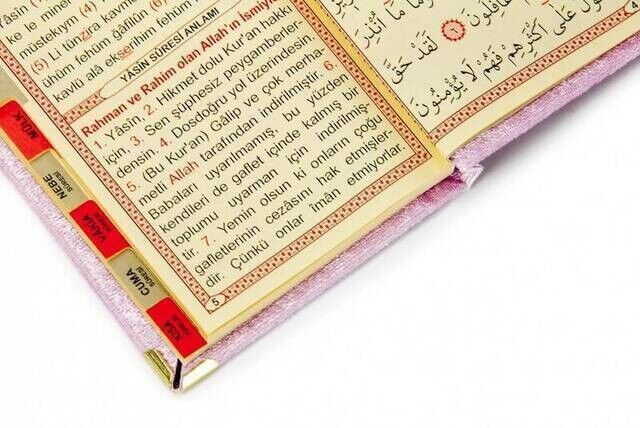 ke le mine
müstekıym (4) Li tünzira kavme
(5)
ühüm fehüm ğâfilûn (6)
kavlü alâ ekserihim fehüm
YÂSÎN SÛRESİ ANLAMI
Rahman ve Rahim olan Allah'ın İsmiyle
1. Yâsîn, 2. Hikmet dolu Kur'an hakkı
için, 3. Sen şüphesiz peygamberler-
densin. 4. Dosdoğru yol üzerindesin.
5. (Bu Kur'an) Gâlip ve çok merha-
metli Allah tarafından indirilmiştir. 6.
Babaları uyarılmamış, bu yüzden
kendileri de gaflet içinde kalmış bir
toplumu uyarman için indirilmiş-
tir. 7. Yemin olsun ki onların çoğu
gafletlerinin cezasını hak etmişler-
dir. Çünkü onlar îmân etmiyorlar.
5
غَافِلُونَ ﴿٦﴾ لَقَدْ حَقَّ
عَلَى أَكْثَرِهِمْ فَهُمْ لَا يُؤْمِنُونَ
MÜLK
NEBE
SÛRESİ
VÂKIA
SÛRESİ
CUMA
SÛRESİ
KISA